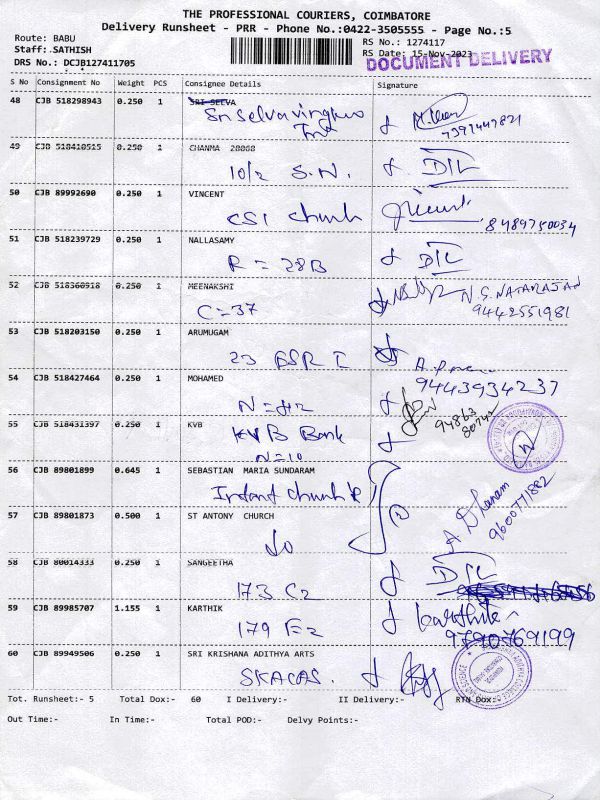 THE PROFESSIONAL COURIERS, COIMBATORE
Delivery Runsheet - PRR - Phone No.:0422-3505555 - Page No.:5
Route: BABU
Staff: SATHISH
DRS No.: DCJB127411705
RS No.: 1274117
RS Date: 15-Nov-2023
DOCUMENT DELIVERY
S No Consignment No Weight PCS Consignee Details Signature
48 CJB 518298943 0.250 1 SRI SELVA
Sri Selvavinayaga
7397447821
49 CJB 518410515 0.250 1 CHANMA 28068
10/2 S.N. DIL
50 CJB 89992690 0.250 1 VINCENT
CSI Church
8489750034
51 CJB 518239729 0.250 1 NALLASAMY
R = 28B DIL
52 CJB 518360918 0.250 1 MEENAKSHI
C = 37 N.S. NATARAJAN
9442551981
53 CJB 518203150 0.250 1 ARUMUGAM
23 BSR I
54 CJB 518427464 0.250 1 MOHAMED
9443934237
N =
55 CJB 518431397 0.250 1 KVB
KVB Bank
N = 10
56 CJB 89801899 0.645 1 SEBASTIAN MARIA SUNDARAM
Infant Church
57 CJB 89801873 0.500 1 ST ANTONY CHURCH
A Dhanam
9600771882
58 CJB 80014333 0.250 1 SANGEETHA
173 C2 DIL
59 CJB 89985707 1.155 1 KARTHIK
179 E2 karthik
9790769199
60 CJB 89949506 0.250 1 SRI KRISHANA ADITHYA ARTS
SKACAS.
Tot. Runsheet:- 5 Total Dox:- 60 I Delivery:- II Delivery:- RTN Dox:-
Out Time:- In Time:- Total POD:- Delvy Points:-